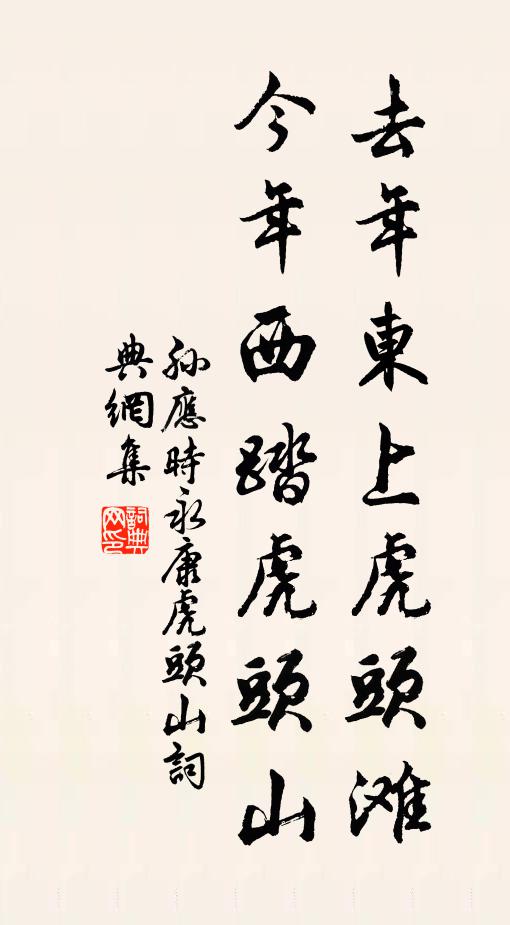 去年東上虎頭滩
今年西踏虎頭山
孫應時永康虎頭山詞
典網集
詞典
网印